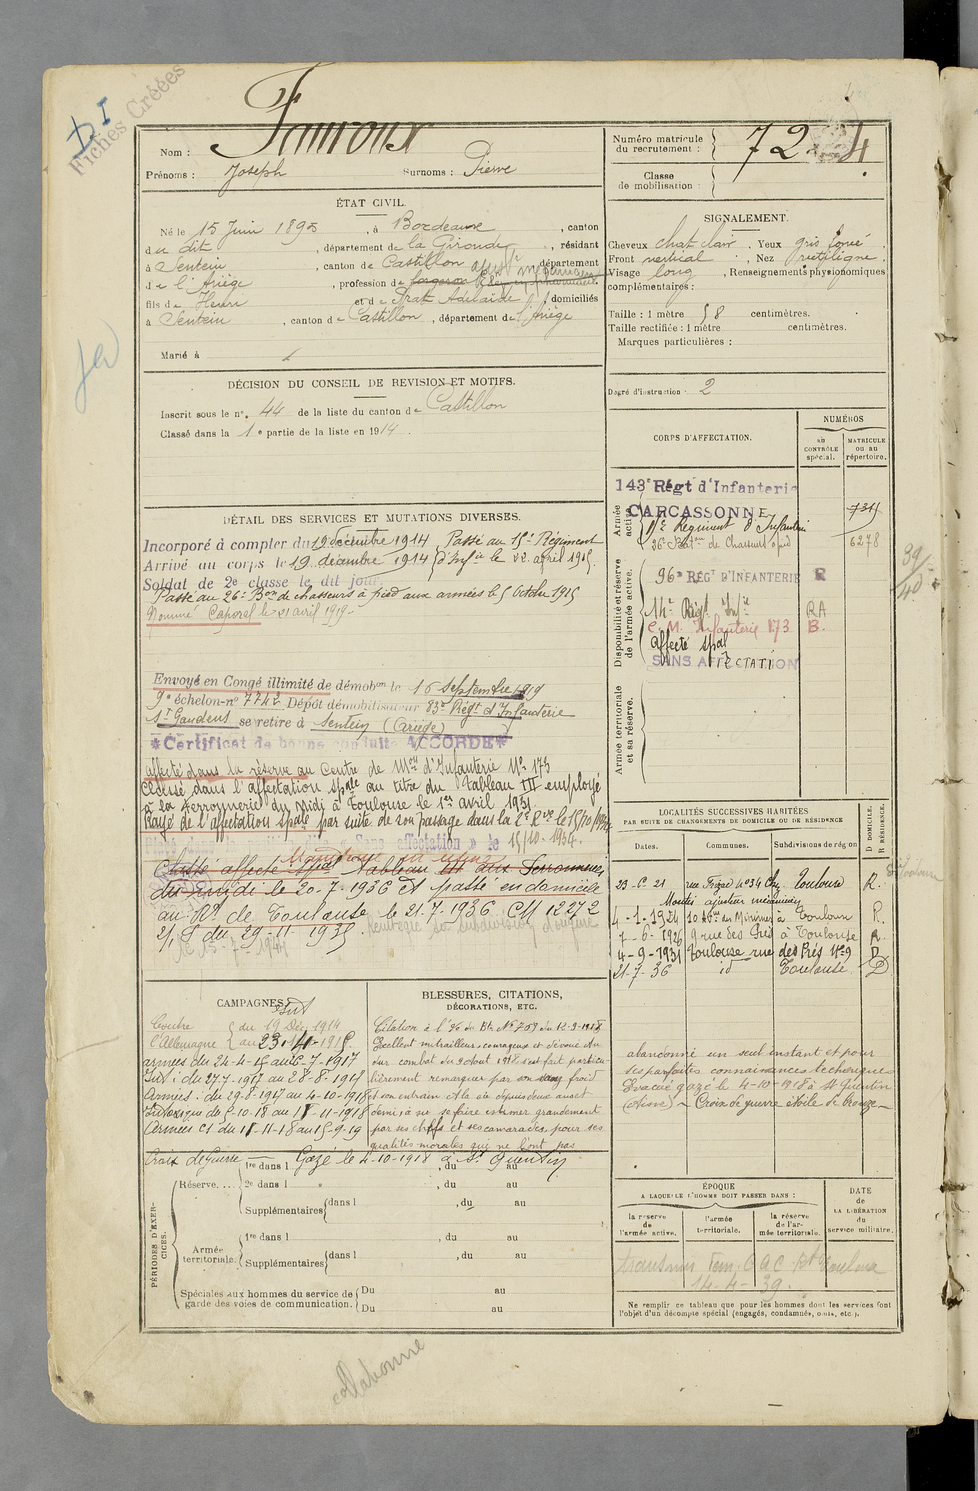 DI
Fiches Créées
Nom : Fauroux
Prénoms : Joseph Surnoms : Pierre
Numéro matricule du recrutement : 724
Classe de mobilisation :
ÉTAT CIVIL.
Né le 15 Juin 1895, à Bordeaux, canton
du dit, département de la Gironde, résidant
à Sentein, canton de Castillon, département
de l'Ariège, profession de
fils de Henri et de Prat Adélaïde, domiciliés
à Sentein, canton de Castillon, département de l'Ariège
Marié à
SIGNALEMENT.
Cheveux chat clair. Yeux gris foncé
Front vertical, Nez rectiligne.
Visage long, Renseignements physionomiques
complémentaires :
Taille : 1 mètre 58 centimètres.
Taille rectifiée : 1 mètre centimètres.
Marques particulières :
Degré d'instruction : 2
DÉCISION DU CONSEIL DE REVISION ET MOTIFS.
Inscrit sous le n°. 44 de la liste du canton de Castillon
Classé dans la 1e partie de la liste en 1914.
CORPS D'AFFECTATION.
NUMÉROS
au CONTRÔLE spécial.
MATRICULE ou au répertoire.
Armée active.
143e Régt d'Infanterie
CARCASSONNE
15e Régiment d'Infanterie
26e Bat on de Chasseurs à pied 6278
Disponibilité et réserve de l'armée active.
96e RÉGT D'INFANTERIE R
14e Régt Infie RA
C. M. Infanterie 173 B.
affecté spal
SANS AFFECTATION
Armée territoriale et sa réserve.
39/40
DÉTAIL DES SERVICES ET MUTATIONS DIVERSES.
Incorporé à compter du 19 décembre 1914 Passé au 15e Régiment
Arrivé au corps le 19 décembre 1914 d'Infie le 22 avril 1915.
Soldat de 2e classe le dit jour.
Passé au 26e Bon de chasseurs à pied aux armées le 5 Octobre 1915
Nommé Caporal le 21 avril 1919
Envoyé en Congé illimité de démobon le 16 septembre 1919
9e échelon n° 7742 Dépôt démobilisateur 83e Régt d'Infanterie
St Gaudens se retire à Sentein (Ariège)
*Certificat de bonne conduite ACCORDÉ*
affecté dans la réserve au Centre de Mon d'Infanterie No 173
Classé dans l'affectation spale au titre du tableau III employé
à la Ferronnerie du Midi à Toulouse le 1er avril 1931
Rayé de l'affectation spale par suite de son passage dans la 2e Rve le 15/10/1934
Sans affectation le 15/10-1934.
Classé affecté spal Tableau III aux Ferronneries
du Midi le 20-7-1936 et passé en domicile
au Rt de Toulouse le 21.7-1936 CM 12272
du 29-11-1935
LOCALITÉS SUCCESSIVES HABITÉES
PAR SUITE DE CHANGEMENTS DE DOMICILE OU DE RÉSIDENCE
Dates. Communes. Subdivisions de région D DOMICILE. R RÉSIDENCE.
Toulouse R.
4-1-1924 à Toulouse R.
7-6-1926 9 rue des Prés à Toulouse R.
4-9-1931 Toulouse rue des Prés No 9 D
21-7-36 id Toulouse. D
CAMPAGNES
Contre l'Allemagne du 19 Déc. 1914
armées du 24-4-15 au 6-7-1917
Int : du 27-7-1917 au 28-8-1917
Armées : du 29-8-1917 au 4-10-1918
Armées CI du 18-11-18 au 15-9-19
BLESSURES, CITATIONS, DÉCORATIONS, ETC.
Citation à l'O du Bt. No 709 du 12-9-1918
Excellent mitrailleur, courageux et dévoué. Au
dur combat du 9 Aout 1918 s'est fait particu-
lièrement remarquer par son sang froid
et son entrain. A la cie depuis deux ans et
demi, a ne se faire estimer grandement
par ses chefs et ses camarades, pour ses
qualités morales qui ne l'ont pas
abandonné un seul instant et pour
ses parfaites connaissances techniques
Evacué gazé le 4-10-1918 à St Quentin
(Aisne) – Croix de guerre étoile de bronze –
Croix de Guerre – Gazé le 4-10-1918 à St Quentin
PÉRIODES D'EXERCICES.
Réserve....
1re dans l , du au
2e dans l , du au
Supplémentaires dans l , du au
, du au
Armée territoriale.
1re dans l , du au
Supplémentaires dans l , du au
Spéciales aux hommes du service de garde des voies de communication. Du au
Du au
ÉPOQUE
A LAQUELLE L'HOMME DOIT PASSER DANS :
la réserve de l'armée active.
l'armée territoriale.
la réserve de l'armée territoriale.
DATE de LA LIBÉRATION du service militaire.
14-4-39.
Ne remplir ce tableau que pour les hommes dont les services font
l'objet d'un décompte spécial (engagés, condamnés, omis, etc.).